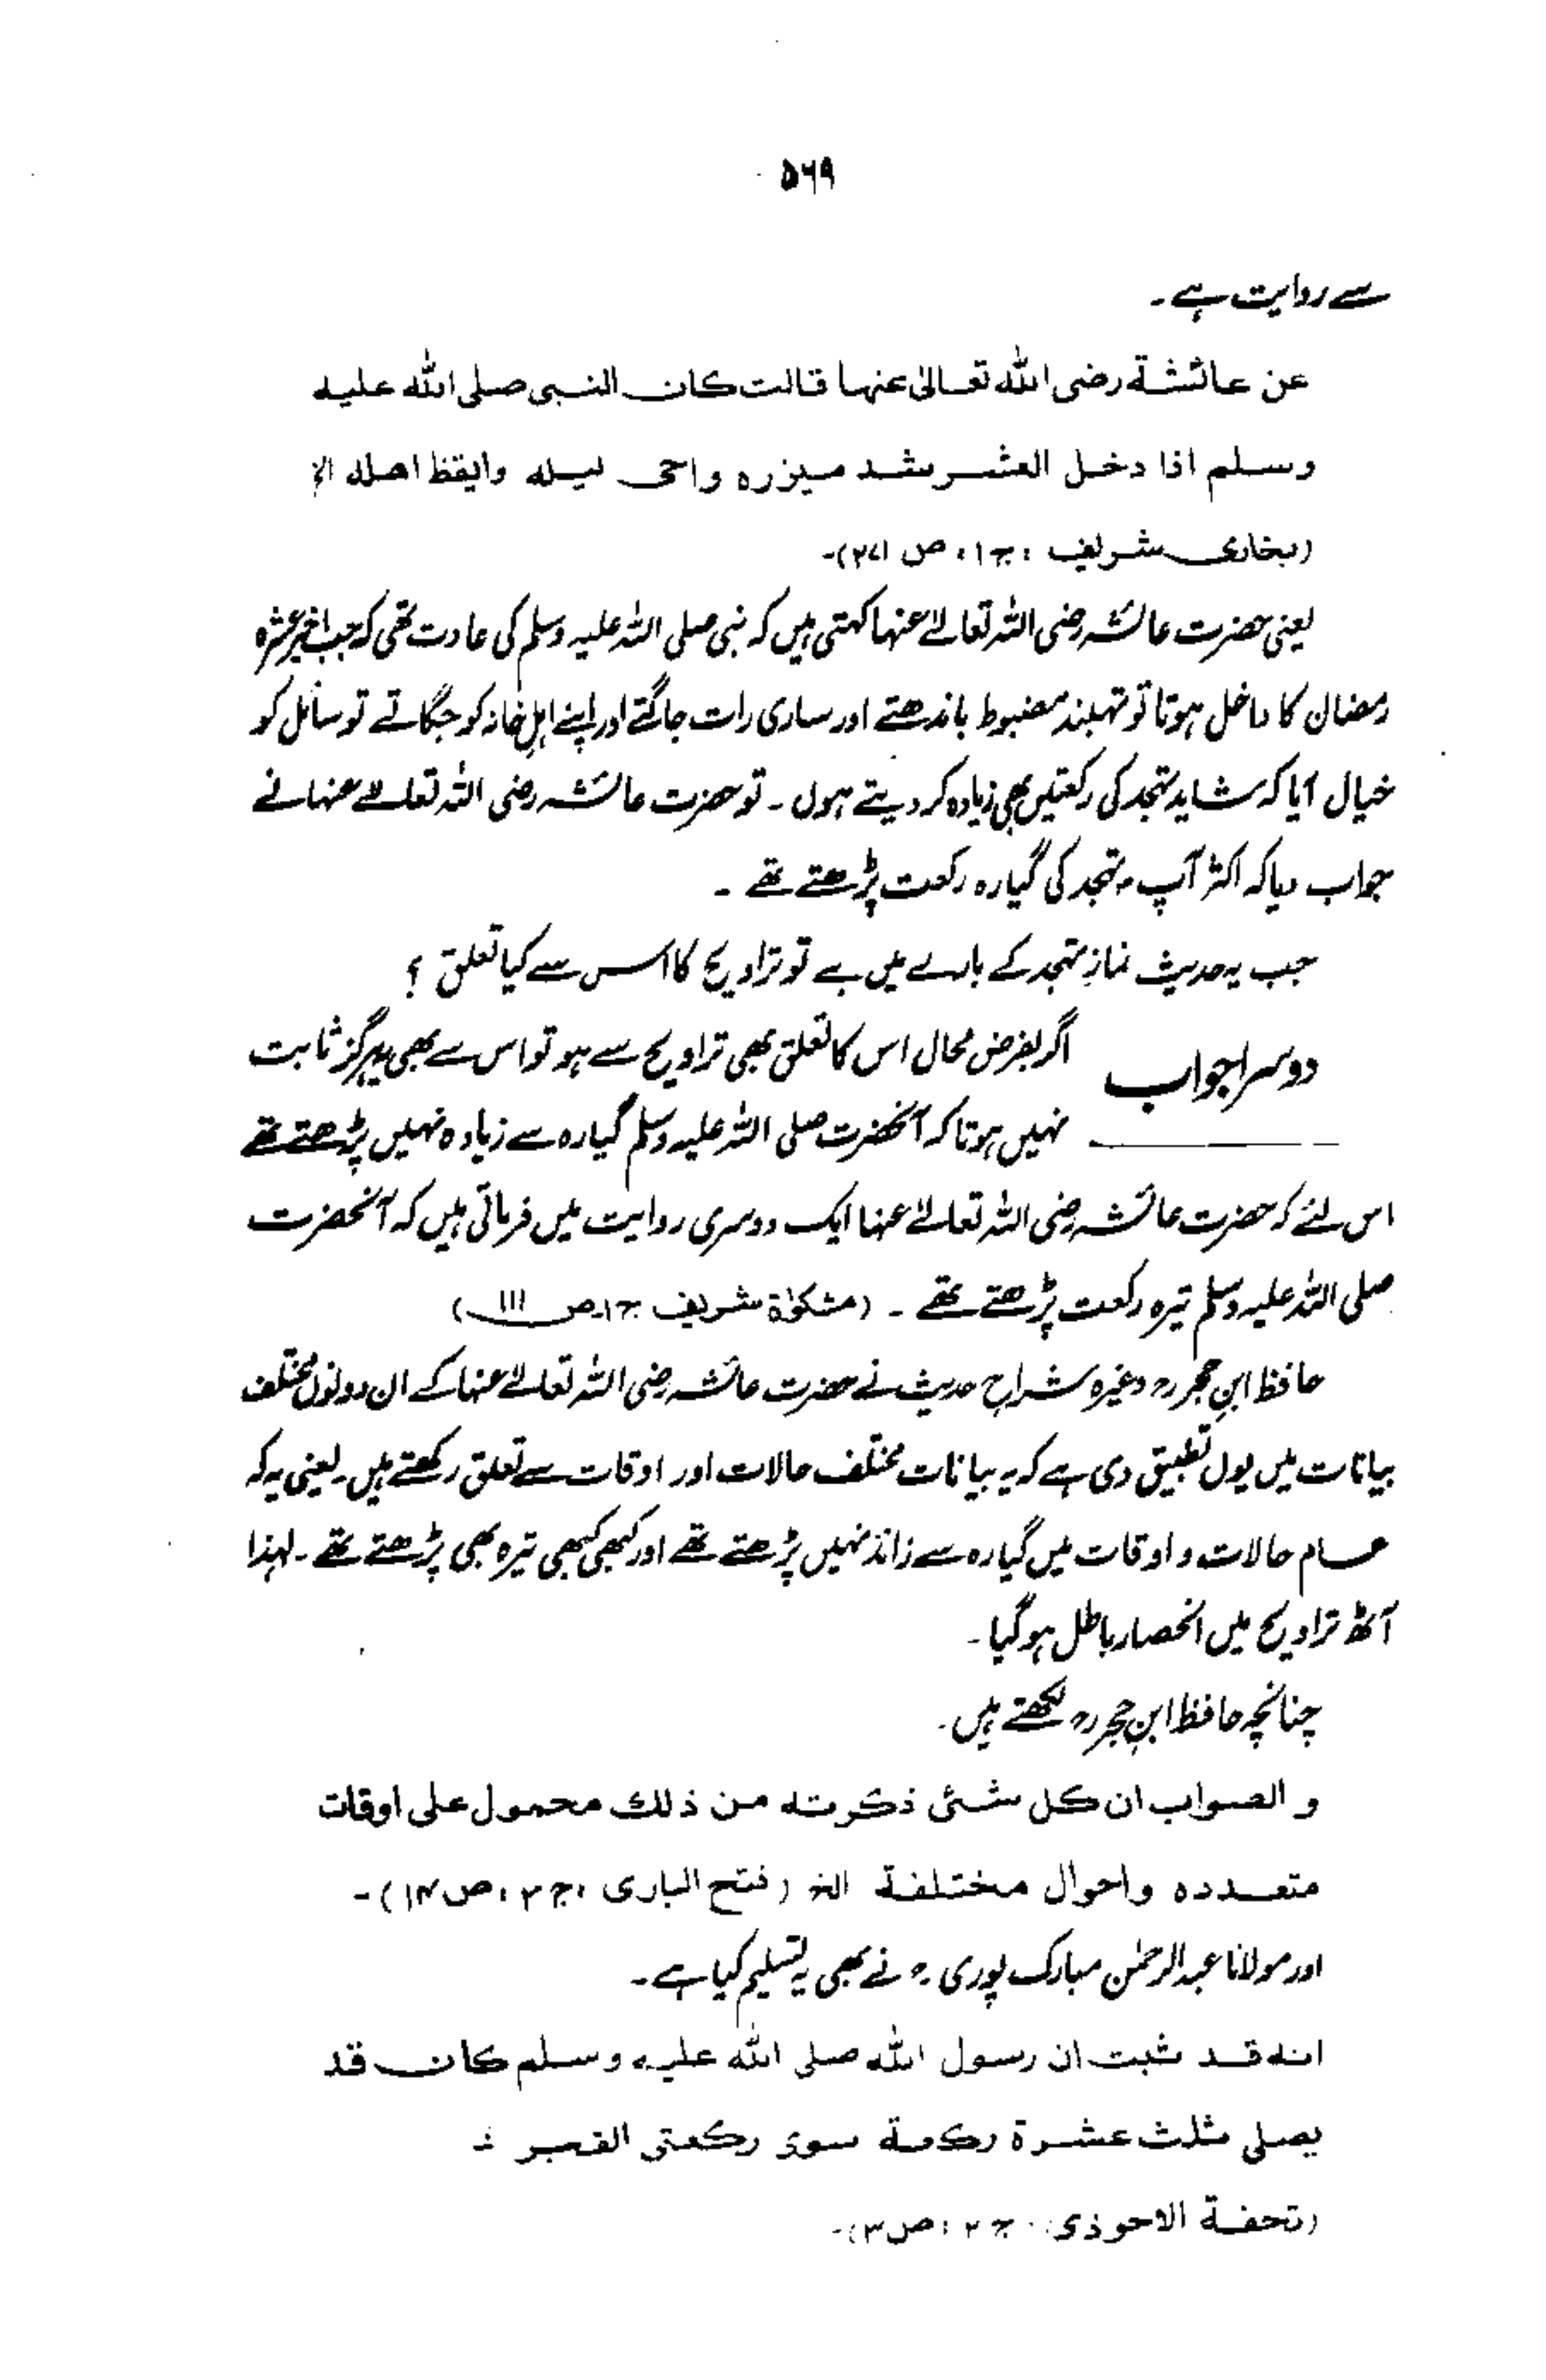 ۵۶۹
سے روایت ہے۔
عن عائشة رضی الله تعالیٰ عنها قالت كان النبی صلی الله علیه
وسلم اذا دخل العشر شد میزره واحی لیله وایقظ اهله الخ
(بخاری شریف ، ج ۱ ، ص ۲۷۱)۔
یعنی حضرت عائشہ رضی اللہ تعالےٰ عنہا کہتی ہیں کہ نبی صلی اللہ علیہ وسلم کی عادت تھی کہ جب اخیر عشرہ
رمضان کا داخل ہوتا تو تہبند مضبوط باندھتے اور ساری رات جاگتے اور اپنے اہلِ خانہ کو جگاتے تو سائل کو
خیال آیا کہ شاید تہجد کی رکعتیں بھی زیادہ کر دیتے ہوں ۔ تو حضرت عائشہ رضی اللہ تعالےٰ عنہا نے
جواب دیا کہ اکثر آپ تہجد کی گیارہ رکعت پڑھتے تھے ۔
جب یہ حدیث نمازِ تہجد کے بارے میں ہے تو تراویح کا اس سے کیا تعلق ؟
دوسرا جواب اگر بفرض محال اس کا تعلق بھی تراویح سے ہو تو اس سے بھی یہ ہرگز ثابت
نہیں ہوتا کہ آنحضرت صلی اللہ علیہ وسلم گیارہ سے زیادہ نہیں پڑھتے تھے
اس لئے کہ حضرت عائشہ رضی اللہ تعالےٰ عنہا ایک دوسری روایت میں فرماتی ہیں کہ آنحضرت
صلی اللہ علیہ وسلم تیرہ رکعت پڑھتے تھے ۔ (مشکوٰة شریف ج۱، ص ۱۱۱)
حافظ ابنِ حجرؒ وغیرہ شراحِ حدیث نے حضرت عائشہ رضی اللہ تعالےٰ عنہا کے ان دونوں مختلف
بیانات میں یوں تطبیق دی ہے کہ یہ بیانات مختلف حالات اور اوقات سے تعلق رکھتے ہیں۔ یعنی یہ کہ
عام حالات و اوقات میں گیارہ سے زائد نہیں پڑھتے تھے اور کبھی کبھی تیرہ بھی پڑھتے تھے ۔ لہٰذا
آٹھ تراویح میں انحصار باطل ہو گیا ۔
چنانچہ حافظ ابنِ حجرؒ لکھتے ہیں ۔
و الصواب ان كل شئی ذكرته من ذلك محمول علی اوقات
متعدده واحوال مختلفة الخ (فتح الباری ، ج ۳ ، ص ۱۴)۔
اور مولانا عبدالرحمٰن مبارک پوریؒ نے بھی یہ تسلیم کیا ہے ۔
انه قد ثبت ان رسول الله صلی الله علیه وسلم كان قد
یصلی ثلث عشرة ركعة سوی ركعتی الفجر
(تحفة الاحوذی ج ۲ ، ص ۳)۔